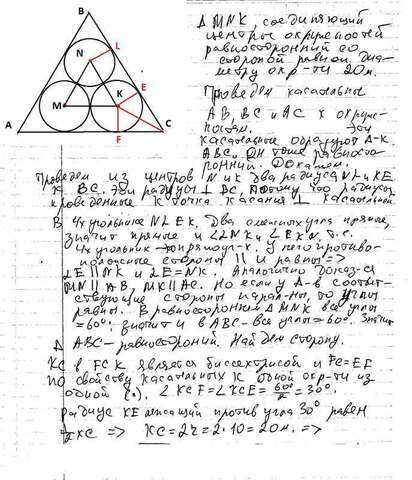 B
L
N
E
M
K
A
F
C
Δ MNK, соединяющий
центры окружностей
равносторонний со
стороной равной диа-
метру окр-ти 20м.
Проведем касательные
AB, BC и AC к окруж-
ностям. Эти
касательные образуют Δ-к
ABC. Он тоже равносто-
ронний. Докажем.
Проведем из центров N и K два радиуса NL и KE
к BC. Эти радиусы ⊥ BC, потому что радиусы,
проведенные к точке касания ⊥ касательной.
В 4х угольнике NLEK два смежных угла прямые,
значит прямые и ∠LNK и ∠EKN, т.е.
4х угольник - прямоуг-к. У него противо-
положные стороны || и равны =>
LE || NK и LE = NK. Аналогично доказ-ся
MN || AB, MK || AC. Но если у Δ-в соответ-
ствующие стороны парал-ны, то углы
равны. В равностороннем Δ MNK все углы
=60°, значит и в ABC - все углы = 60°. Значит
Δ ABC - равносторонний. Найдем сторону.
KC в FCK является биссектрисой и FC=EC
по свойству касательных к одной окр-ти из
одной (·). ∠KCF=∠KCE= 60°/2 =30°.
радиус KE лежащий против угла 30° равен
1/2 KC => KC = 2r = 2·10 = 20м. =>